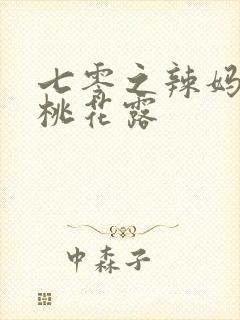 七零之辣妈
桃花露
中森子